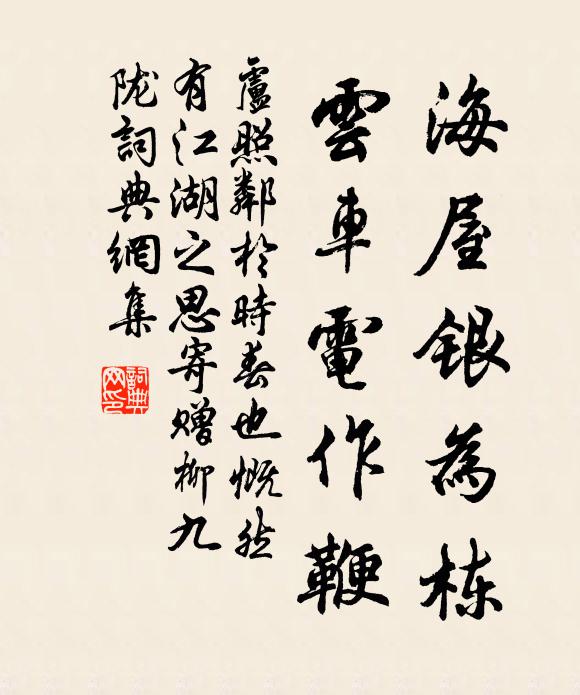 海屋銀為栋
雲車電作鞭
盧照鄰於時春也慨然
有江湖之思寄贈柳九
陇詞典網集
詞典
网印